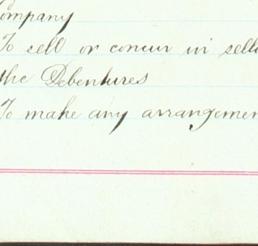 Company
To sell or concur in sell
the Debentures
To make any arrangemen